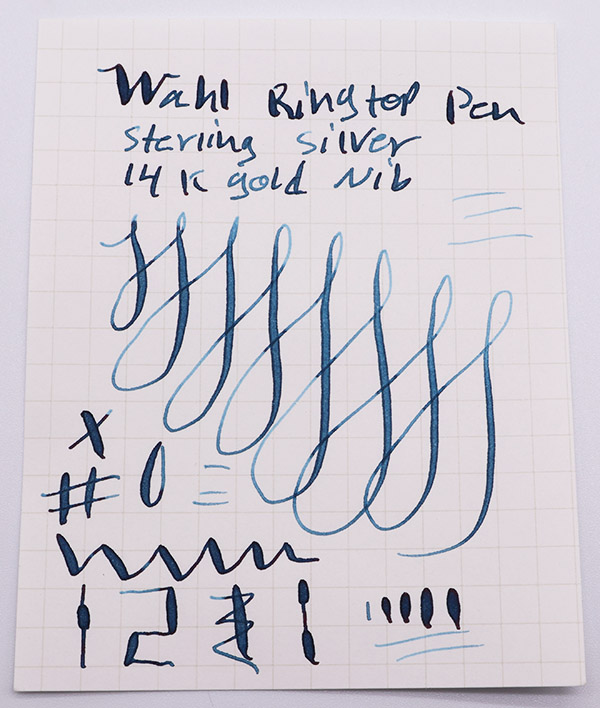 Wahl Ringtop Pen
Sterling Silver
14 K gold Nib
X
# 0